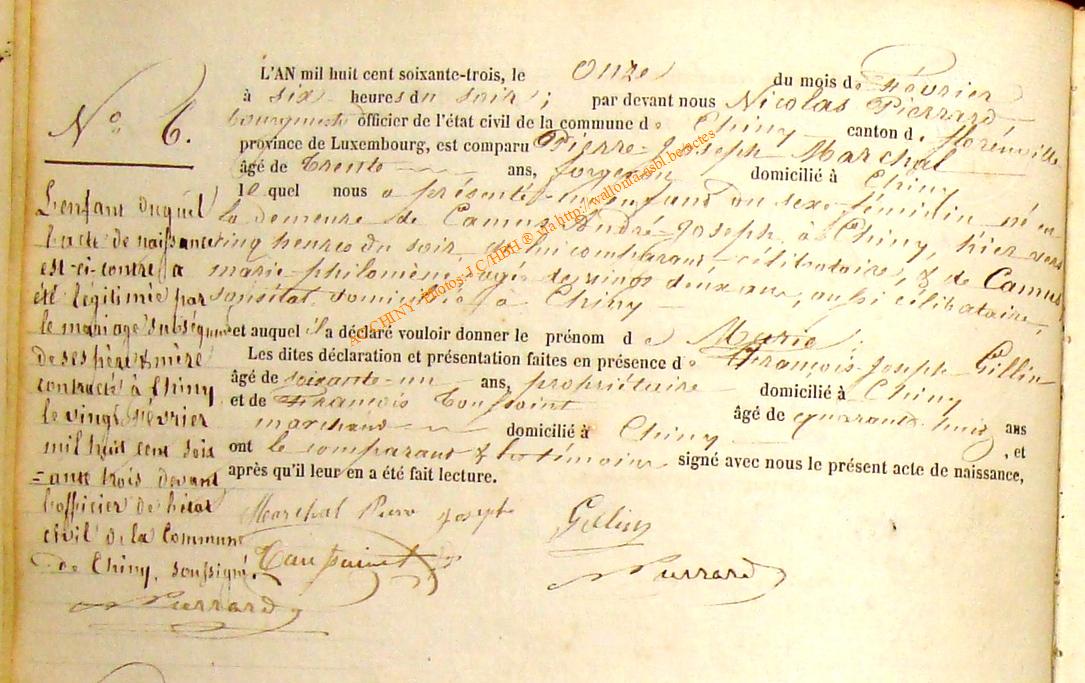 L'AN mil huit cent soixante-trois, le onze du mois de Février
à six heures du soir ; par devant nous Nicolas Pierrard
bourgmestre officier de l'état civil de la commune de Chiny canton de florenville
province de Luxembourg, est comparu Pierre-Joseph Marchal
âgé de trente ans, forgeron domicilié à Chiny
lequel nous a présenté un enfant du sexe féminin né en
la demeure de Camus André-Joseph, à Chiny, hier vers
cinq heures du soir, de lui comparant célibataire, & de Camus
marie-philomène, agée de vingt deux ans, aussi célibataire,
domiciliée à Chiny
et auquel il a déclaré vouloir donner le prénom de Marie ;
Les dites déclaration et présentation faites en présence de François-Joseph Gillin
âgé de soixante-un ans, propriétaire domicilié à Chiny
et de François Toussaint âgé de quarante huit ans
marchand domicilié à Chiny , et
ont le comparant & les témoins signé avec nous le présent acte de naissance,
après qu'il leur en a été fait lecture.
Marchal Pierre Joseph
Gillin
Toussaint
Pierrard
N° 6.
L'enfant duquel
l'acte de naissance
est-ci-contre a
été légitimée par
le mariage subséquent
de ses père & mère
contracté à Chiny
le vingt Février
mil huit cent soix
=ante trois devant
l'officier de l'état
civil de la Commune
de Chiny, soussigné.
Pierrard
AC CHINY - Photos: J C/HBH ® via http://wallonia-asbl.be/actes